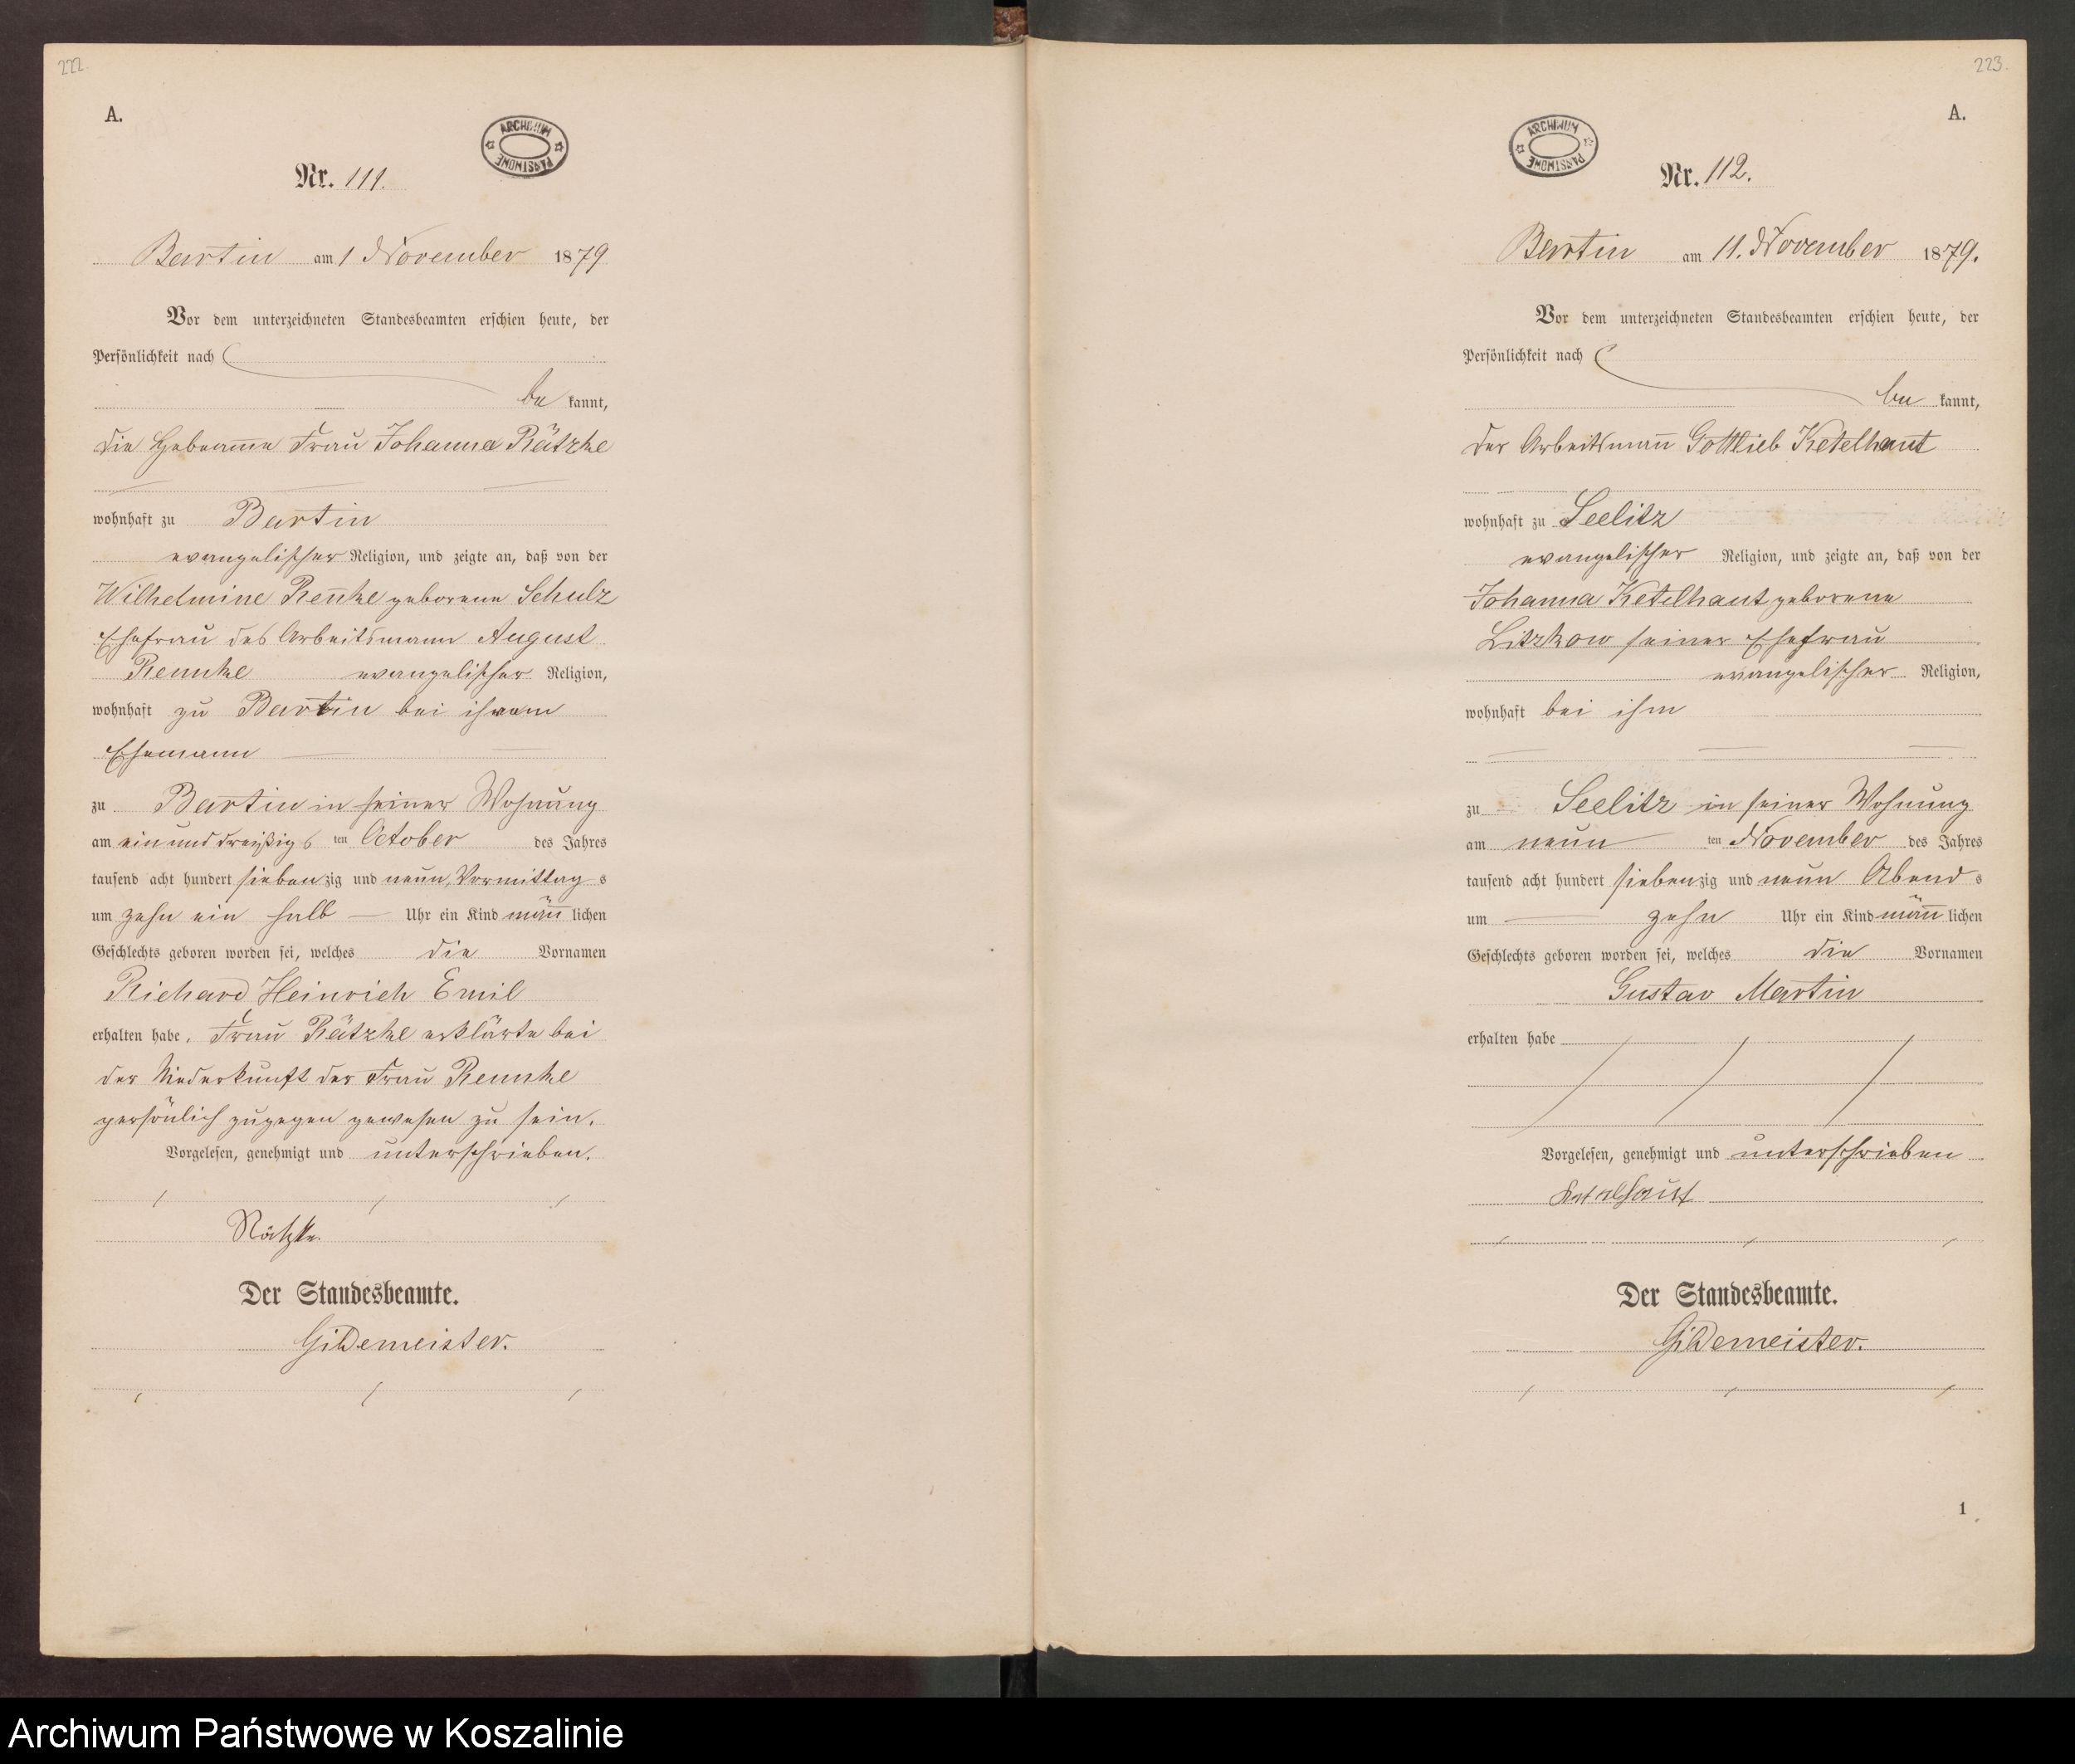 222
A.
ARCHIWUM PAŃSTWOWE
Nr. 111.
Bartin am 1 November 1879
Vor dem unterzeichneten Standesbeamten erschien heute, der
Persönlichkeit nach
be kannt,
die Hebeamme Frau Johanna Rätzke
wohnhaft zu Bartin
evangelischer Religion, und zeigte an, daß von der
Wilhelmine Rennke geborene Schulz
Ehefrau des Arbeitsmann August
Rennke evangelischer Religion,
wohnhaft zu Bartin bei ihrem
Ehemann
zu Bartin in seiner Wohnung
am ein und dreißigs ten October des Jahres
tausend acht hundert sieben zig und neun, Vormittag s
um zehn ein halb Uhr ein Kind männ lichen
Geschlechts geboren worden sei, welches die Vornamen
Richard Heinrich Emil
erhalten habe. Frau Rätzke erklärte bei
der Niederkunft der Frau Rennke
persönlich zugegen gewesen zu sein.
Vorgelesen, genehmigt und unterschrieben.
Rätzke.
Der Standesbeamte.
Gildemeister.
223.
A.
ARCHIWUM PAŃSTWOWE
Nr. 112.
Bartin am 11. November 1879.
Vor dem unterzeichneten Standesbeamten erschien heute, der
Persönlichkeit nach
be kannt,
der Arbeitsmann Gottlieb Ketelhaut
wohnhaft zu Seelitz
evangelischer Religion, und zeigte an, daß von der
Johanna Ketelhaut geborene
Litzkow seiner Ehefrau
evangelischer Religion,
wohnhaft bei ihm
zu Seelitz in seiner Wohnung
am neun ten November des Jahres
tausend acht hundert sieben zig und neun Abend s
um zehn Uhr ein Kind männ lichen
Geschlechts geboren worden sei, welches die Vornamen
Gustav Martin
erhalten habe
Vorgelesen, genehmigt und unterschrieben
Ketelhaut
Der Standesbeamte.
Gildemeister.
1
Archiwum Państwowe w Koszalinie